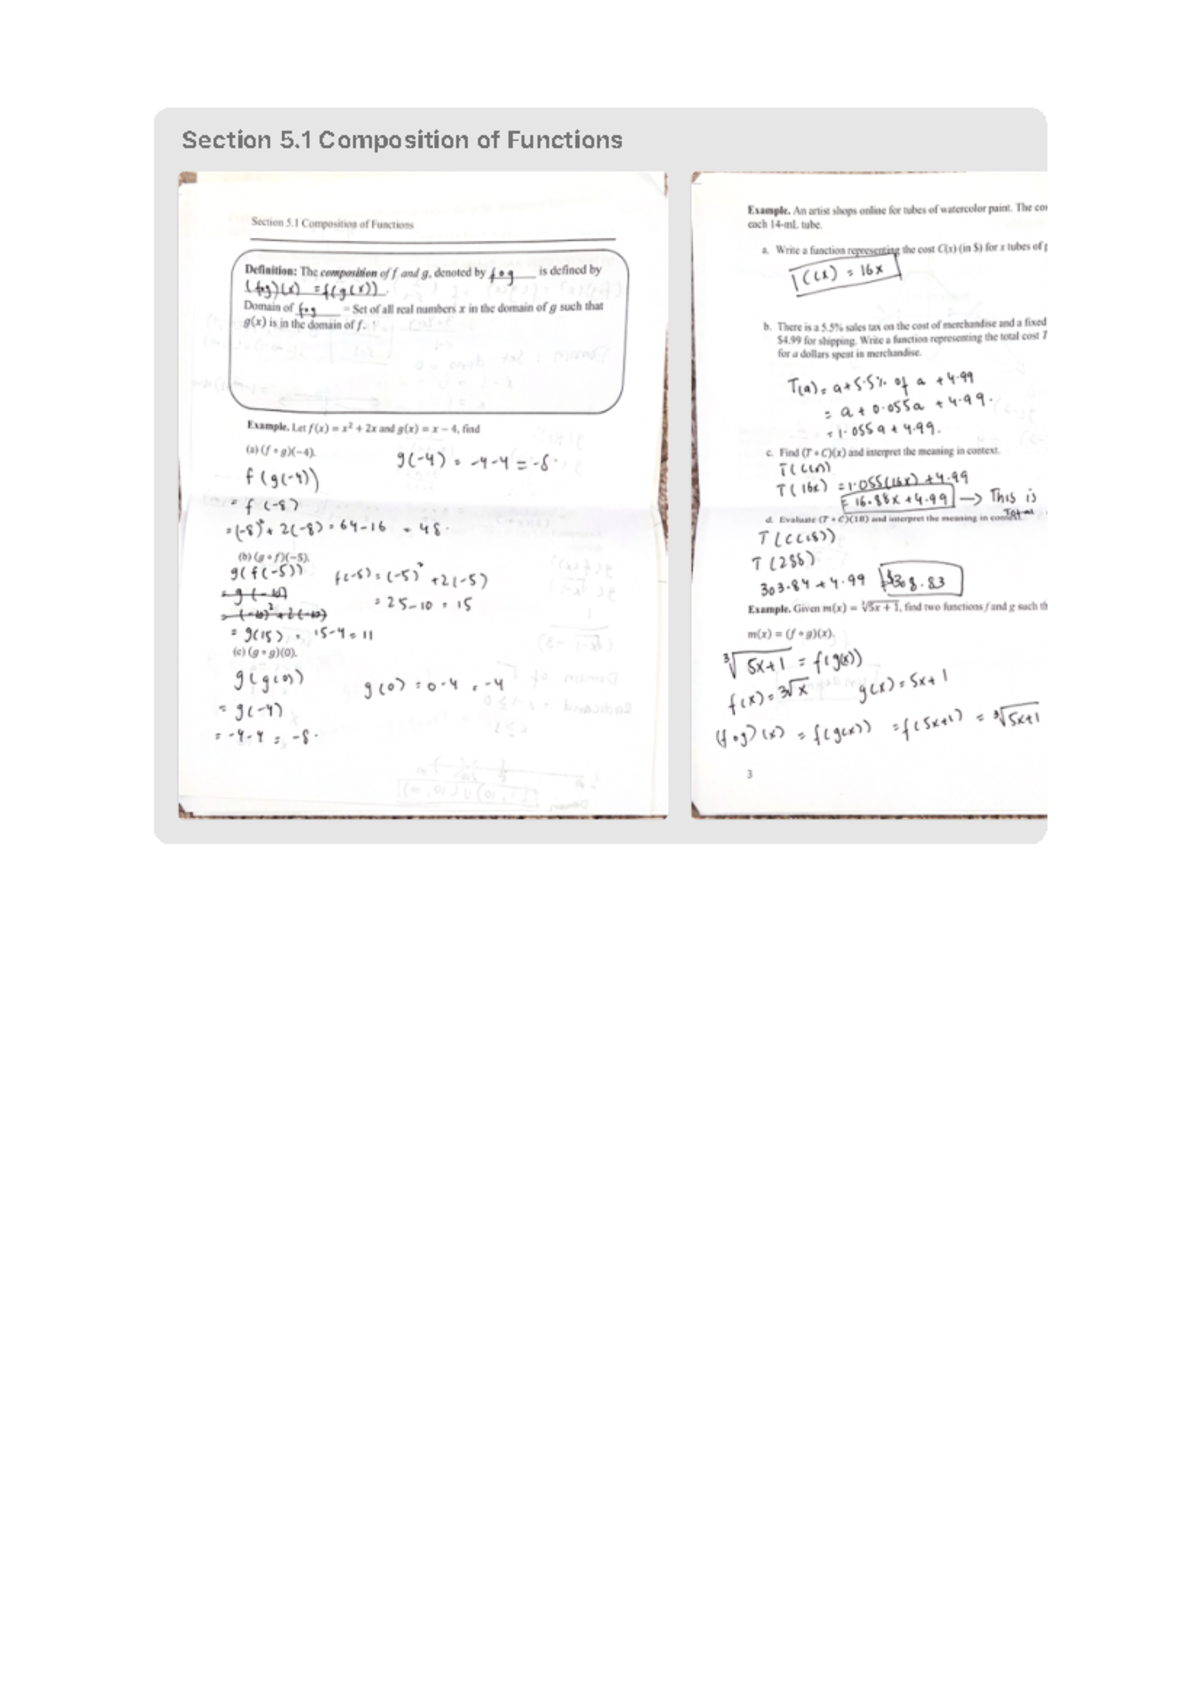 Section 5.1 Composition of Functions
Section 5.1 Composition of Functions
Definition: The composition of f and g, denoted by f∘g is defined by
(f∘g)(x) = f(g(x)).
Domain of f∘g = Set of all real numbers x in the domain of g such that
g(x) is in the domain of f.
Example. Let f(x) = x² + 2x and g(x) = x − 4, find
(a) (f ∘ g)(−4).
g(-4) = -4-4 = -8.
f(g(-4))
= f(-8)
= (-8)² + 2(-8) = 64-16 = 48.
(b) (g ∘ f)(−5).
g(f(-5))
f(-5) = (-5)² + 2(-5)
= g(-10)
= 25-10 = 15
= (-10)² + 2(-10)
= g(15) = 15-4 = 11
(c) (g ∘ g)(0).
g(g(0))
g(0) = 0-4 = -4
= g(-4)
= -4-4 = -8.
Example. An artist shops online for tubes of watercolor paint. The
each 14-mL tube.
a. Write a function representing the cost C(x) (in $) for x tubes of
C(x) = 16x
b. There is a 5.5% sales tax on the cost of merchandise and a fixed
$4.99 for shipping. Write a function representing the total cost T
for a dollars spent in merchandise.
T(a) = a + 5.5% of a + 4.99
= a + 0.055a + 4.99.
= 1.055a + 4.99.
c. Find (T ∘ C)(x) and interpret the meaning in context.
T(C(x))
T(16x) = 1.055(16x) + 4.99
= 16.88x + 4.99 → This is
Total
d. Evaluate (T ∘ C)(18) and interpret the meaning in context.
T(C(18))
T(288)
303.84 + 4.99 $308.83
Example. Given m(x) = ∛5x + 1, find two functions f and g such th
m(x) = (f ∘ g)(x).
∛5x+1 = f(g(x))
f(x) = ∛x g(x) = 5x+1
(f∘g)(x) = f(g(x)) = f(5x+1) = ∛5x+1
3